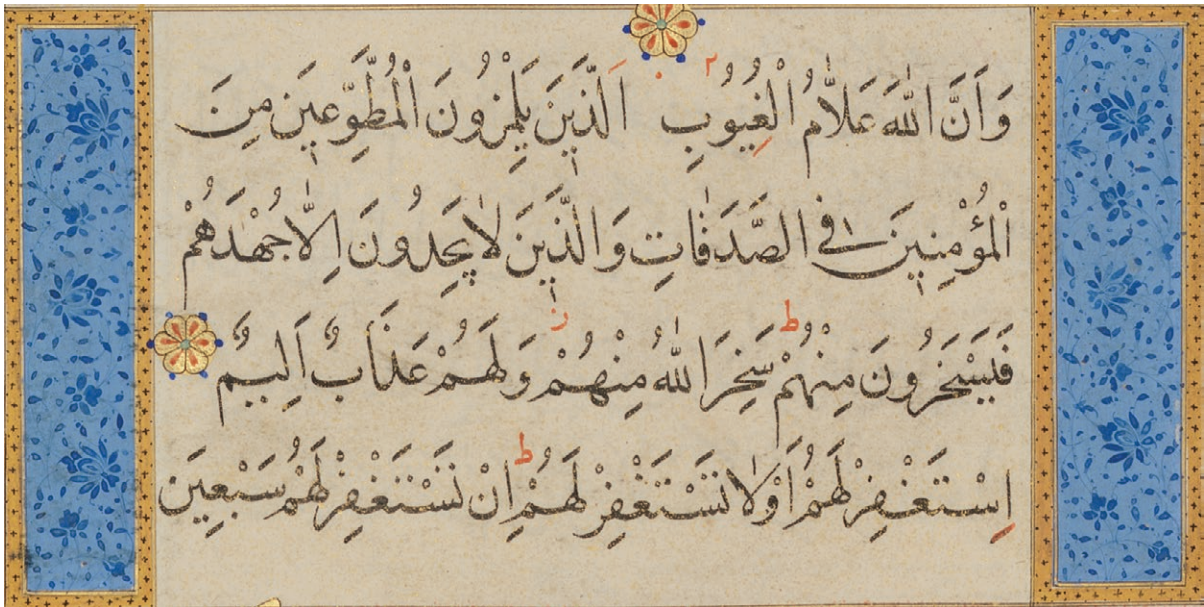 وَاَنَّ اللّٰهَ عَلَّامُ الْغُيُوبِ اَلَّذِينَ يَلْمِزُونَ الْمُطَّوِّعِينَ مِنَ
الْمُؤْمِنِينَ فِي الصَّدَقَاتِ وَالَّذِينَ لَا يَجِدُونَ اِلَّا جُهْدَهُمْ
فَيَسْخَرُونَ مِنْهُمْ ط سَخِرَ اللّٰهُ مِنْهُمْ ز وَلَهُمْ عَذَابٌ اَلِيمٌ
اِسْتَغْفِرْ لَهُمْ اَوْ لَا تَسْتَغْفِرْ لَهُمْ ط اِنْ تَسْتَغْفِرْ لَهُمْ سَبْعِينَ